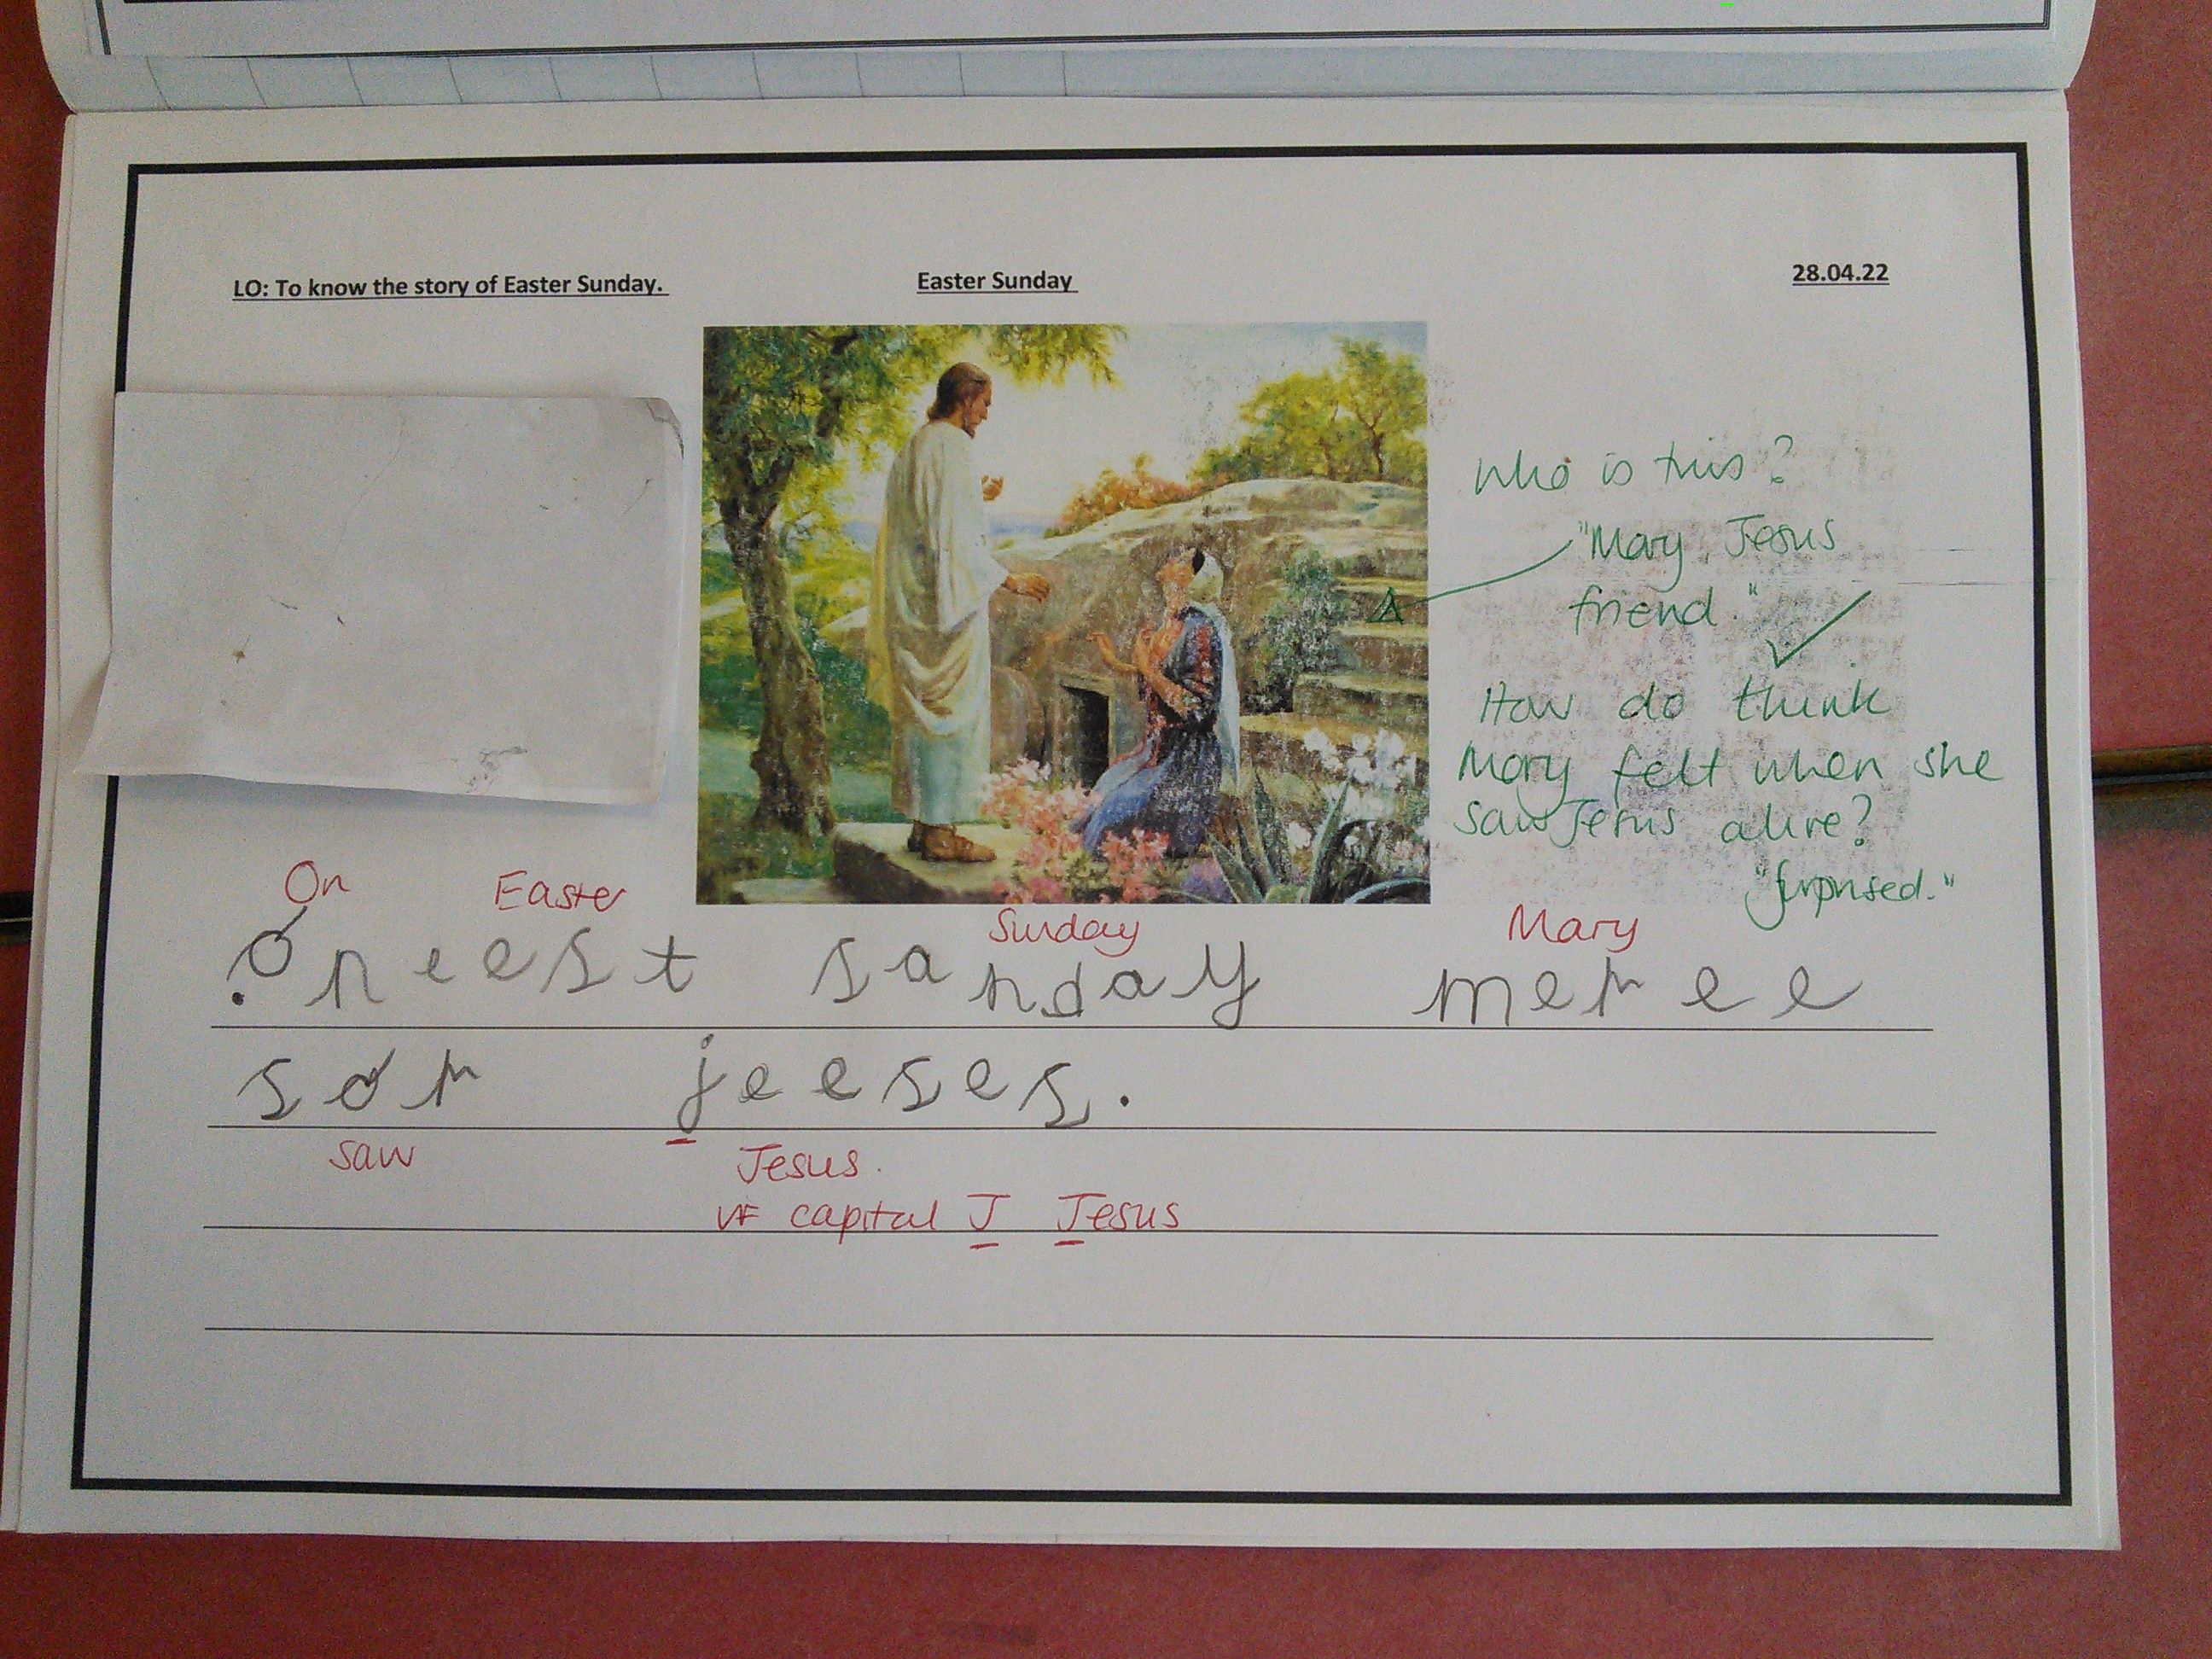 LO: To know the story of Easter Sunday.
Easter Sunday
28.04.22
Who is this?
"Mary, Jesus
friend."
How do think
Mary felt when she
saw Jesus alive?
"surprised."
On Easter Sunday Mary
. oneest sanday meree
sor jeeses.
saw Jesus.
VF capital J Jesus